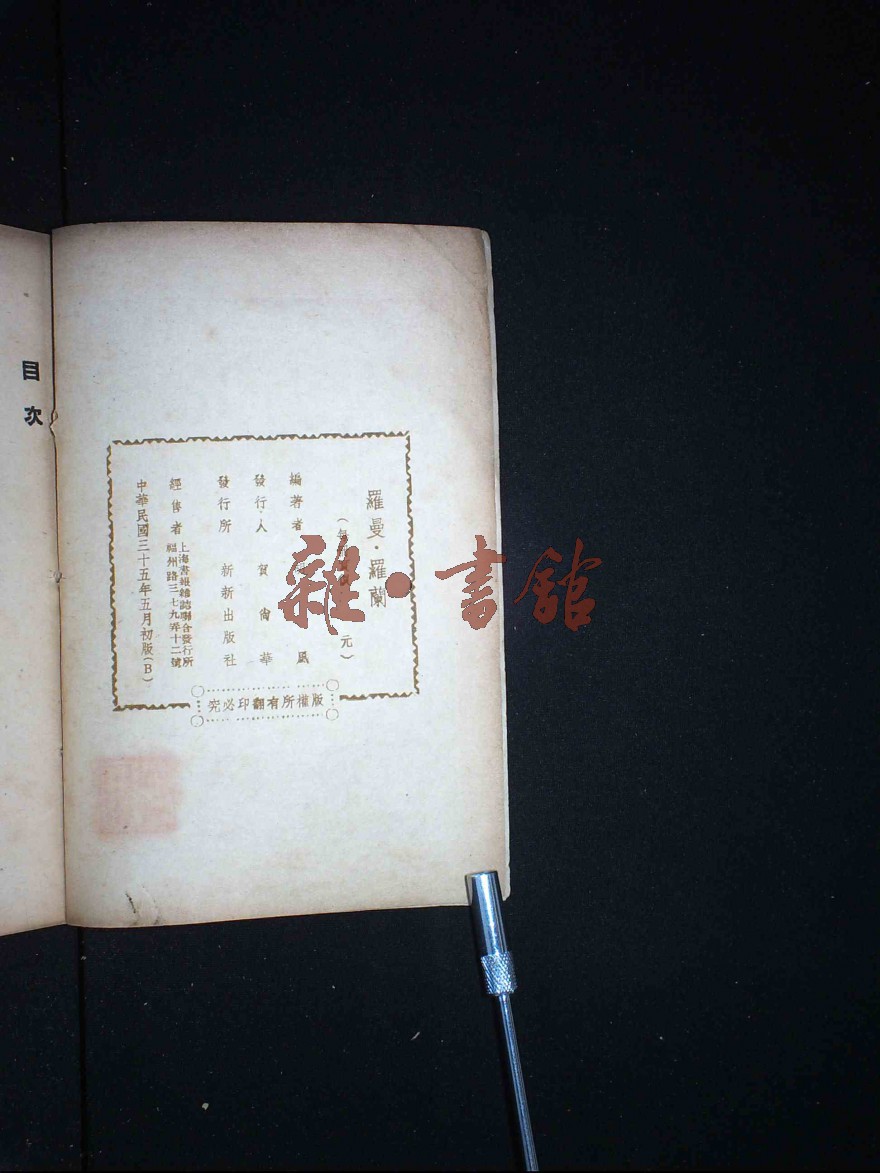 羅曼·羅蘭
元)
編著者 風
發行人 賀尙華
發行所 新新出版社
經售者 上海書報雜誌聯合發行所
福州路三七九弄十二號
中華民國三十五年五月初版(B)
版權所有翻印必究
目次
雜·書館